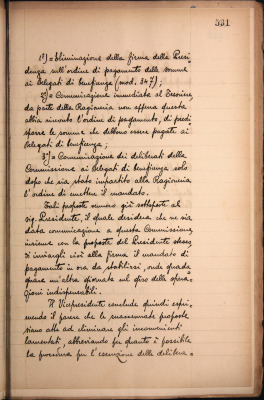 531
1º) = Eliminazione della firma della Presi
denza sull'ordine di pagamento delle somme
ai Delegati di beneficenza (mod. 347);
2º) = Comunicazione immediata al Cessiere,
da parte della Ragioneria non appena questa
abbia ricevuto l'ordine di pagamento, di predi
sporre le somme che debbono essere pagate ai
Delegati di beneficenza;
3º) = Comunicazione dei deliberati della
Commissione ai Delegati di beneficenza solo
dopo che sia stato impartito alla Ragioneria
l'ordine di emettere il mandato.
Tali proposte vennero già sottoposte al
sig. Presidente, il quale desidera che ne sia
data comunicazione a questa Commissione,
insieme con la proposta del Presidente stesso
di inviargli ivi alla firma il mandato di
pagamento in ora da stabilirsi, onde guada
gnare un'altra giornata sul giro delle opera
zioni indispensabili.
Il Vicepresidente conclude quindi espri
mendo il parere che le surriferite proposte
siano atte ad eliminare gli inconvenienti
lamentati, abbreviando per quanto è possibile
la procedura per l'esecuzione delle delibera=